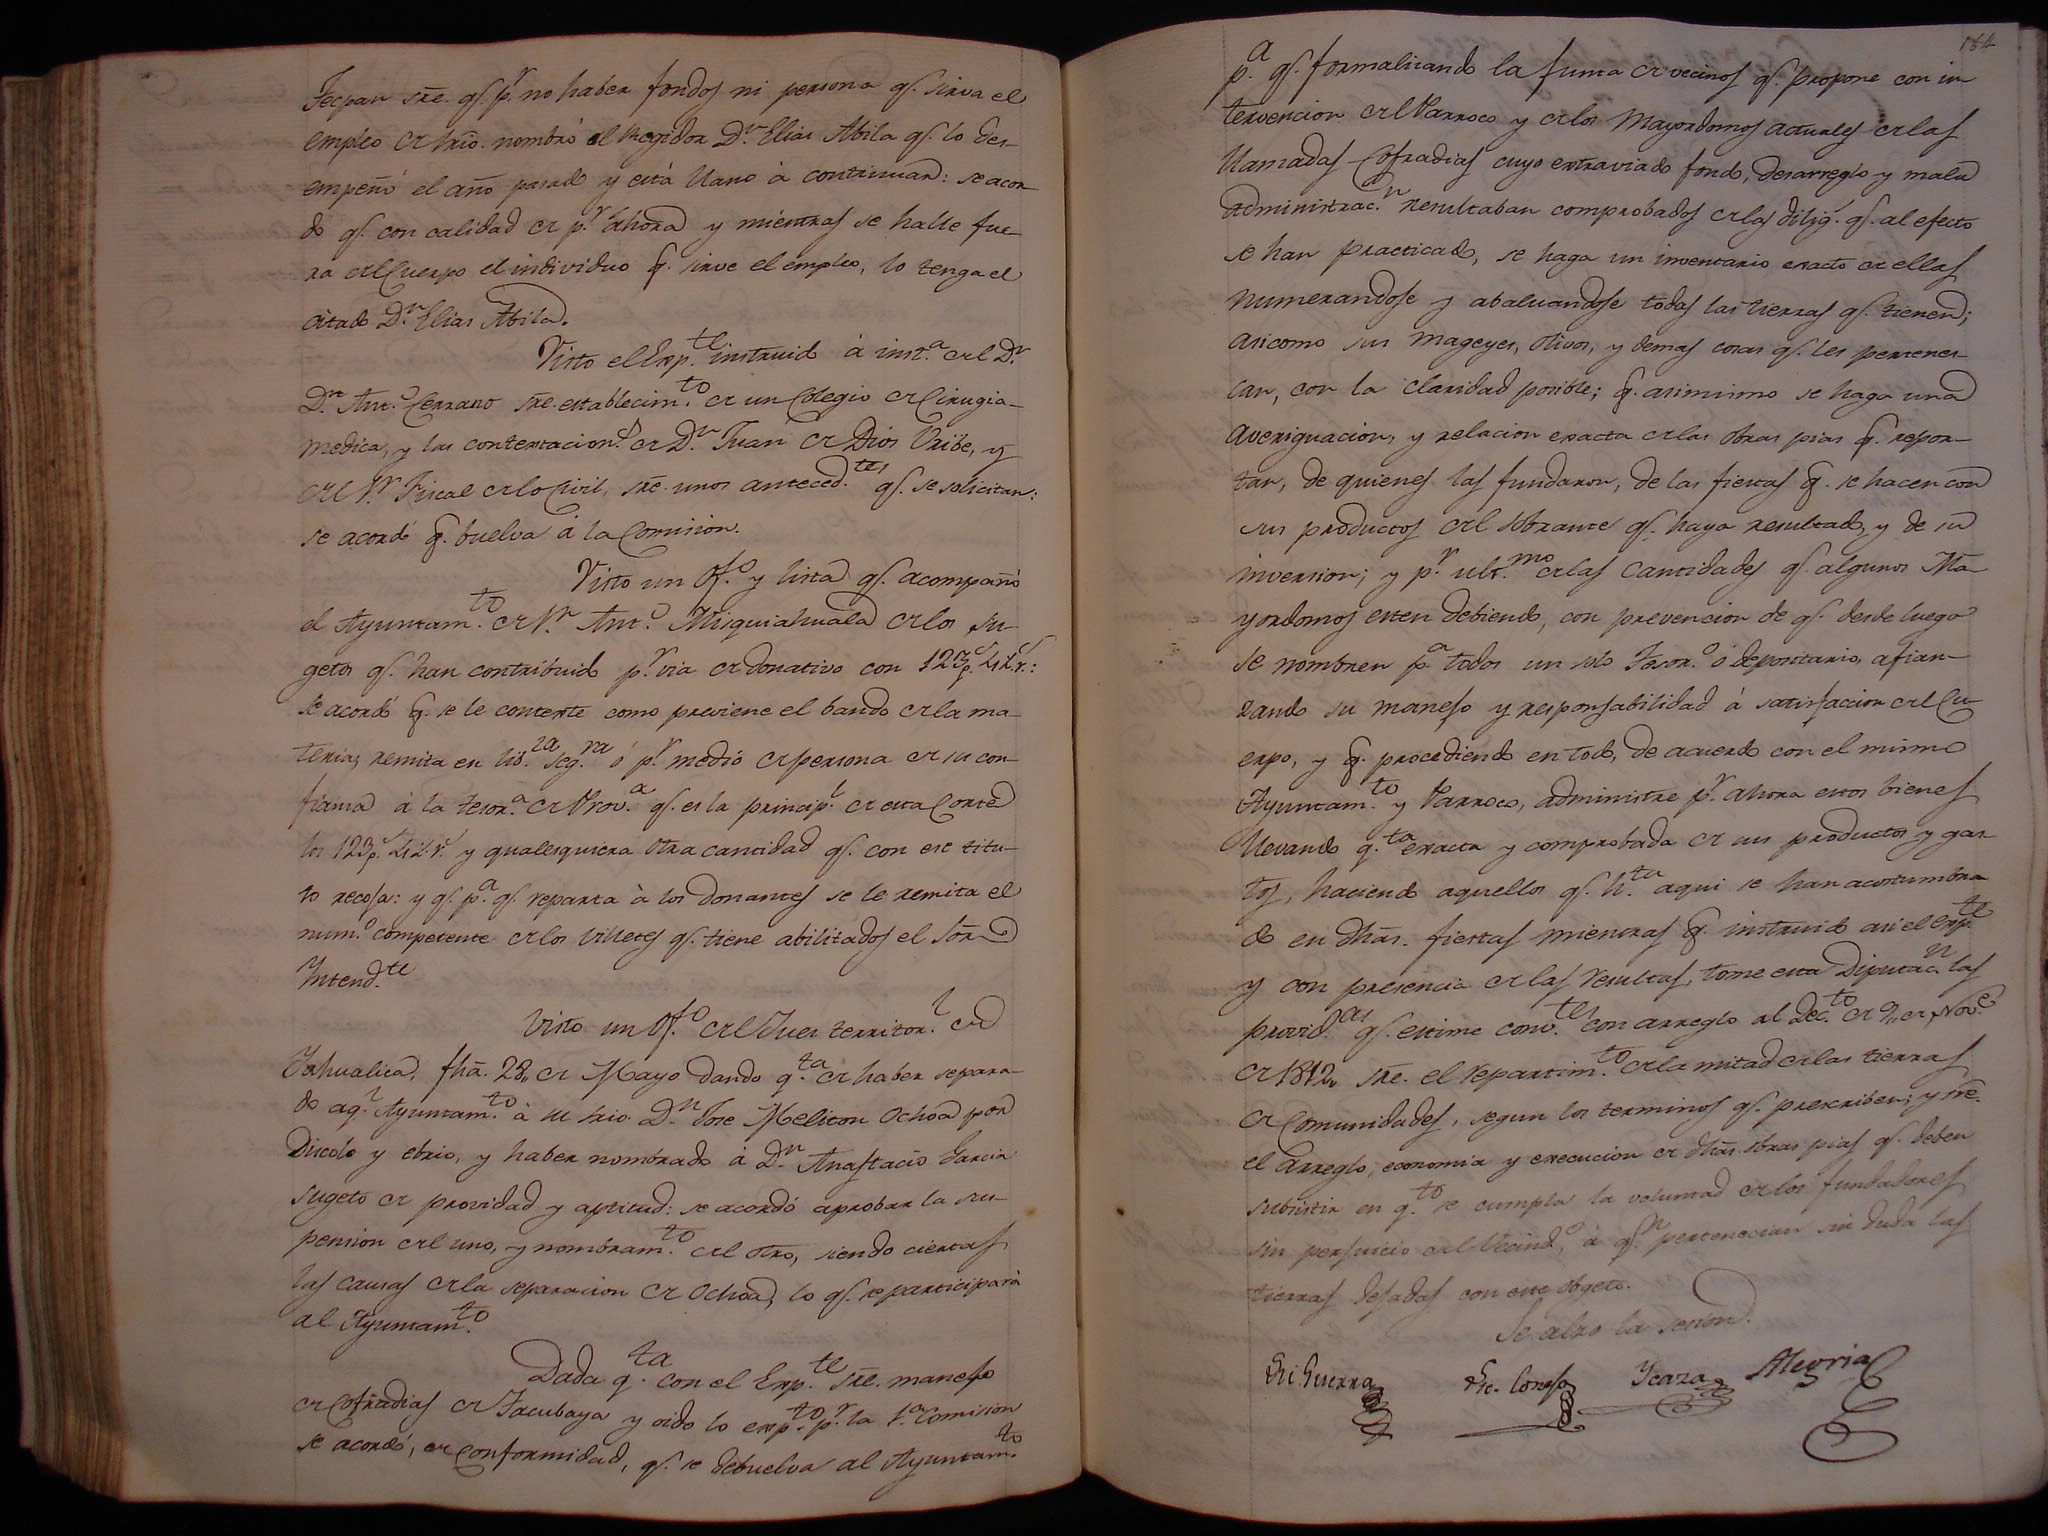 Tecpan sre. qe. pr. no haber fondos ni persona qe. sirva el
empleo de srio. nombró al Regidor Dn. Elias Abila qe. lo des-
empeñó el año pasado y está llano á continuar: se acor-
dó qe. con calidad de pr. ahora y mientras se halle fue-
ra del Cuerpo el individuo q. sirve el empleo, lo tenga el
citado Dn. Elias Abila.
Visto el Exp.te instruido á inst.a del Dr.
Dn. Ant.o Serrano sre. establecim.to de un Colegio de Cirugia-
medica, y las contestacion.s de Dn. Juan de Dios Uribe, y
del Sr. Fiscal de lo Civil, sre. unos anteced.tes qe. se solicitan:
se acordó q. buelva á la Comision.
Visto un Of.o y lista qe. acompañó
el Ayuntam.to de Sn. Ant.o Misquiahuala de los su-
getos qe. han contribuido pr. via de donativo con 123ps. 4½rs.:
se acordó q. se le conteste como previene el bando de la ma-
teria, remita en lib.za seg.ra ó pr. medio de persona de su con-
fianza á la tesor.a de Prov.a qe. es la princip.l de esta Corte
los 123ps. 4½rs. y qualesquiera otra cantidad qe. con ese titu-
lo recoja: y qe. p.a qe. reparta á los donantes se le remita el
num.o competente de los villetes qe. tiene abilitados el Sõr.
Intend.te
Visto un Of.o del Juez territor.l de
Yahualica, fha. 28,, de Mayo dando q.ta de haber separa-
do aq.l Ayuntam.to á su srio. Dn. Jose Meliton Ochoa por
Discolo y ebrio, y haber nombrado á Dn. Anastacio Garcia
sugeto de providad y aptitud: se acordó aprobar la sus-
pension del uno, y nombram.to del otro, siendo ciertas
las causas de la separacion de Ochoa, lo qe. se participará
al Ayuntam.to
Dada q.ta con el Exp.te sre. manejo
de Cofradias de Tacubaya y oido lo exp.to pr. la 1.a Comision
se acordó, de conformidad, qe. se debuelva al Ayuntam.to
184
p.a qe. formalizando la junta de vecinos qe. propone con in
tervencion del Parroco y de los Mayordomos actuales de las
llamadas Cofradias cuyo extraviado fondo, desarreglo y mala
administrac.n resultaban comprobados de las dilig.s qe. al efecto
se han practicado, se haga un inventario exacto de ellas
numerandose y abaluandose todas las tierras qe. tienen;
asi como sus mageyes, olivos, y demas cosas qe. les pertenes-
can, con la claridad posible; q. asimismo se haga una
averiguacion, y relacion exacta de las obras pias q. repor-
tan, de quienes las fundaron, de las fiestas q. se hacen con
sus productos del sobrante qe. haya resultado, y de su
inversion; y pr. ult.mo de las cantidades qe. algunos Ma
yordomos esten debiendo, con prevencion de qe. desde luego
se nombren p.a todos un solo Tesor.o ó depositario, afian-
zando su manejo y responsabilidad á satisfaccion del Cu-
erpo, y q. procediendo en todo, de acuerdo con el mismo
Ayuntam.to y Parroco, administre pr. ahora estos bienes
llevando q.ta exacta y comprobada de sus productos y gas-
tos, haciendo aquellos qe. h.ta aqui se han acostumbra
do en dhas. fiestas mientras q. instruido asi el exp.te
y con presencia de las resultas, tome esta Diputac.n las
provid.as qe. estime conv.tes con arreglo al Dec.to de 9,, de Nov.e
de 1812,, sre. el repartim.to de la mitad de las tierras
de Comunidades, segun los terminos qe. prescriben; y sre.
el arreglo, economia y execucion de dhas. obras pias qe. deben
subsistir en q.to se cumpla la voluntad de los fundadores
sin perjuicio del Vecind.o, á qn. pertenecian sin duda las
tierras dejadas con este objeto.
Se alzo la sesion.
Guerra Ycaza Alegria